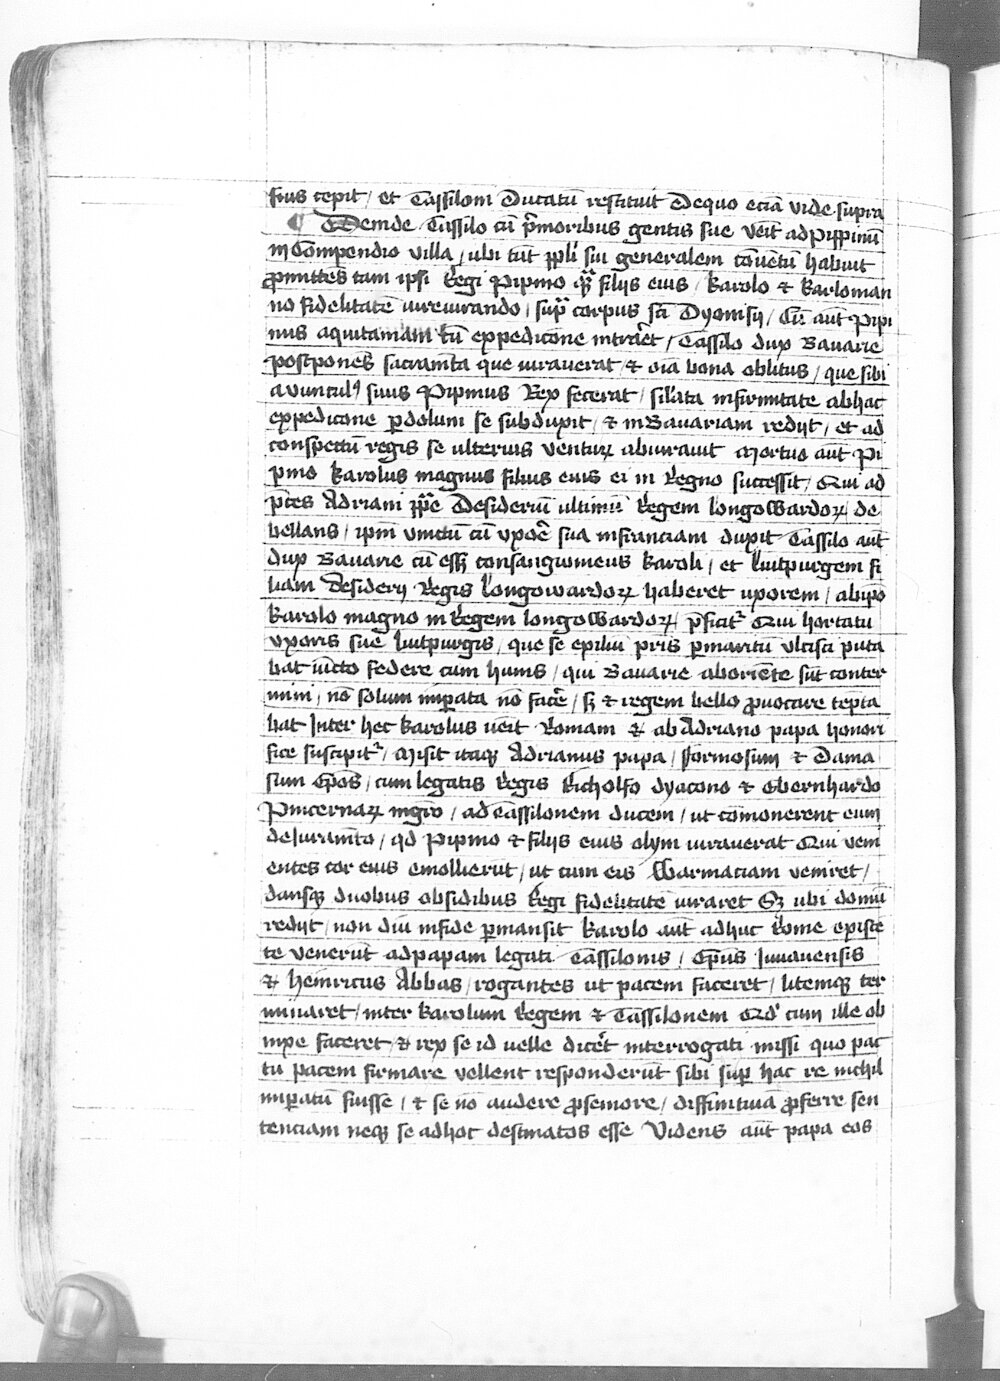 suus cepit / et Tassiloni Ducatū restituit De quo eciā vide supra
¶ Deinde Tassilo cū p̄moribus gentis sue veīt ad Pippinū
in Compendio villa / ubi tūc pp̄li sui generalem cōvētū habuit
ꝓmittēs tam ipsi Regi Pipino qꝫ filijs eius / Karolo et Karloman
no fidelitatē iureiurando / sup̄ corpus scī Dyonisij / Cū aūt Pipi
nus aquitaniam cū expedicōne intrāet / Tassilo dux Bavarie
postponēs sacramēta que iuraverat / et oīa bona oblitus / que sibi
avuncul9 suus Pipinus Rex fecerat / sīlata infirmitate ab hac
expedicōne ꝑ dolum se subduxit / et in Bavariam redijt / et ad
conspectū regis se ulterius venturꝝ abiuravit Mortuo aūt Pi
pino Karolus magnus filius eius ei in Regno successit / Qui ad
p̄ces Adriani pp̄e Desideriū ultimū Regem Longowardorꝝ de
bellans / ipm̄ vinctū cū uxōe sua in franciam duxit Tassilo aūt
dux Bavarie cū eēt consangwineus Karoli / et Luitpurgem fi
liam Desiderij Regis Longowardorꝝ haberet uxorem / ab ip̄o
Karolo magno in Regem Longowardorꝝ p̄ficit᷑ Qui hortatu
uxoris sue Luitpurgis / que se exiliū p̄ris ꝑ maritū ulcisci puta
bat iūcto federe cum hunis / qui Bavarie ab oriēte sūt conter
mini / nō solum imꝑata nō facē / sꝫ et regem bello ꝓvocare tēpta
bat Inter hec Karolus venit Romam et ab Adriano papa honori
fice suscipit᷑ / Misit itaqꝫ Adrianus papa / Formosum et Dama
sum ep̄os / cum legatis Regis Richolfo dyacono et Ebernhardo
Pincernarꝝ mgr̄o / ad Tassilonem ducem / ut cōmonerent eum
de Iuramēto / qd̄ Pipino et filijs eius olym iuraverat Qui veni
entes cor eius emollierūt / ut cum eis Warmaciam veniret /
dansqꝫ duobus obsidibus Regi fidelitatē iuraret Sꝫ ubi domū
redijt / non diu in fide ꝑmansit Karolo aūt adhuc Rome existē
te venerūt ad papam legati Tassilonis / Ep̄us Iuvavensis
et Heinricus Abbas / rogantes ut pacem faceret / litemqꝫ ter
minaret / inter Karolum Regem et Tassilonem Qd̄ cum ille ob
nixe faceret / et rex se id velle dicēt interrogati missi quo pac
tu pacem firmare vellent responderūt sibi suꝑ hac re nichil
imꝑatū fuisse / et se nō audere ꝓ seniore / diffinitivā ꝓferre sen
tenciam neqꝫ se ad hoc destinatos esse Videns aūt papa eos